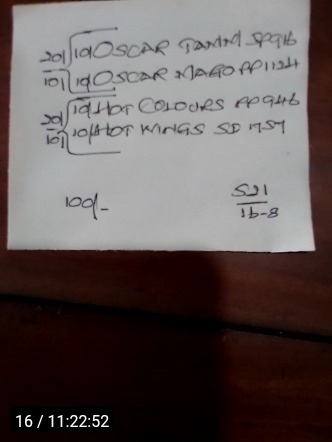 20/ 10/ OSCAR TAMM SP916
10/ 10/ OSCAR MAGO PP1124
20/ 10/ HOT COLOURS PP946
10/ 10/ HOT KINGS SD 1757
100/-
521
16-8
16 / 11:22:52